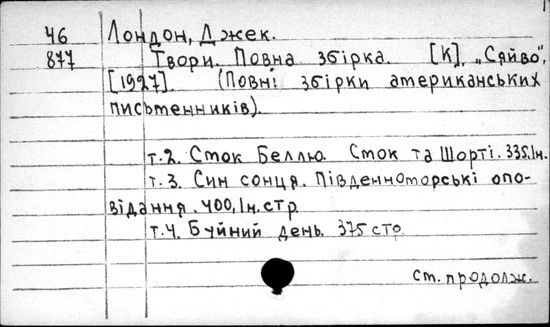 46 Лондон, Джек.
877 Твори. Повна збірка. [К], „Сяйво",
[1927]. (Повні збірки американських
письменників).
т.2. Сток Беллю. Сток та Шорті. 335,1н.
т.3. Син сонця. Південноморські опо-
відання. 400,1н.стр.
т.4. Буйний день. 375 стр.
ст. продолж.